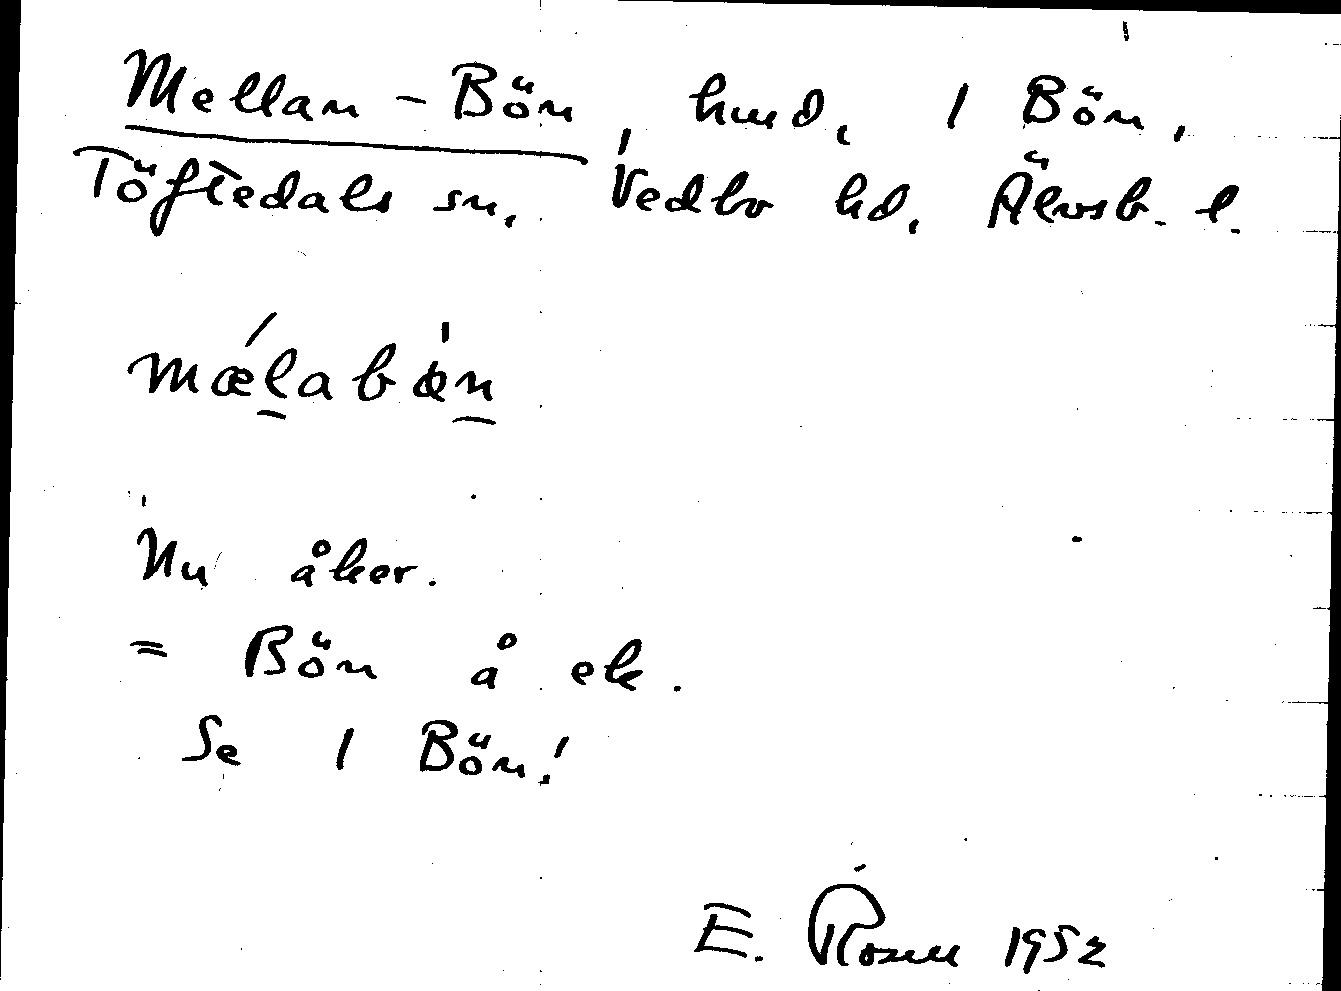 Mellan-Bön, hmd, 1 Bön,
Töftedals sn, Vedbo hd, Älvsb. l.
mǽlabön
Nu åker.
= Bön å ek.
Se 1 Bön!
E. Rosell 1952